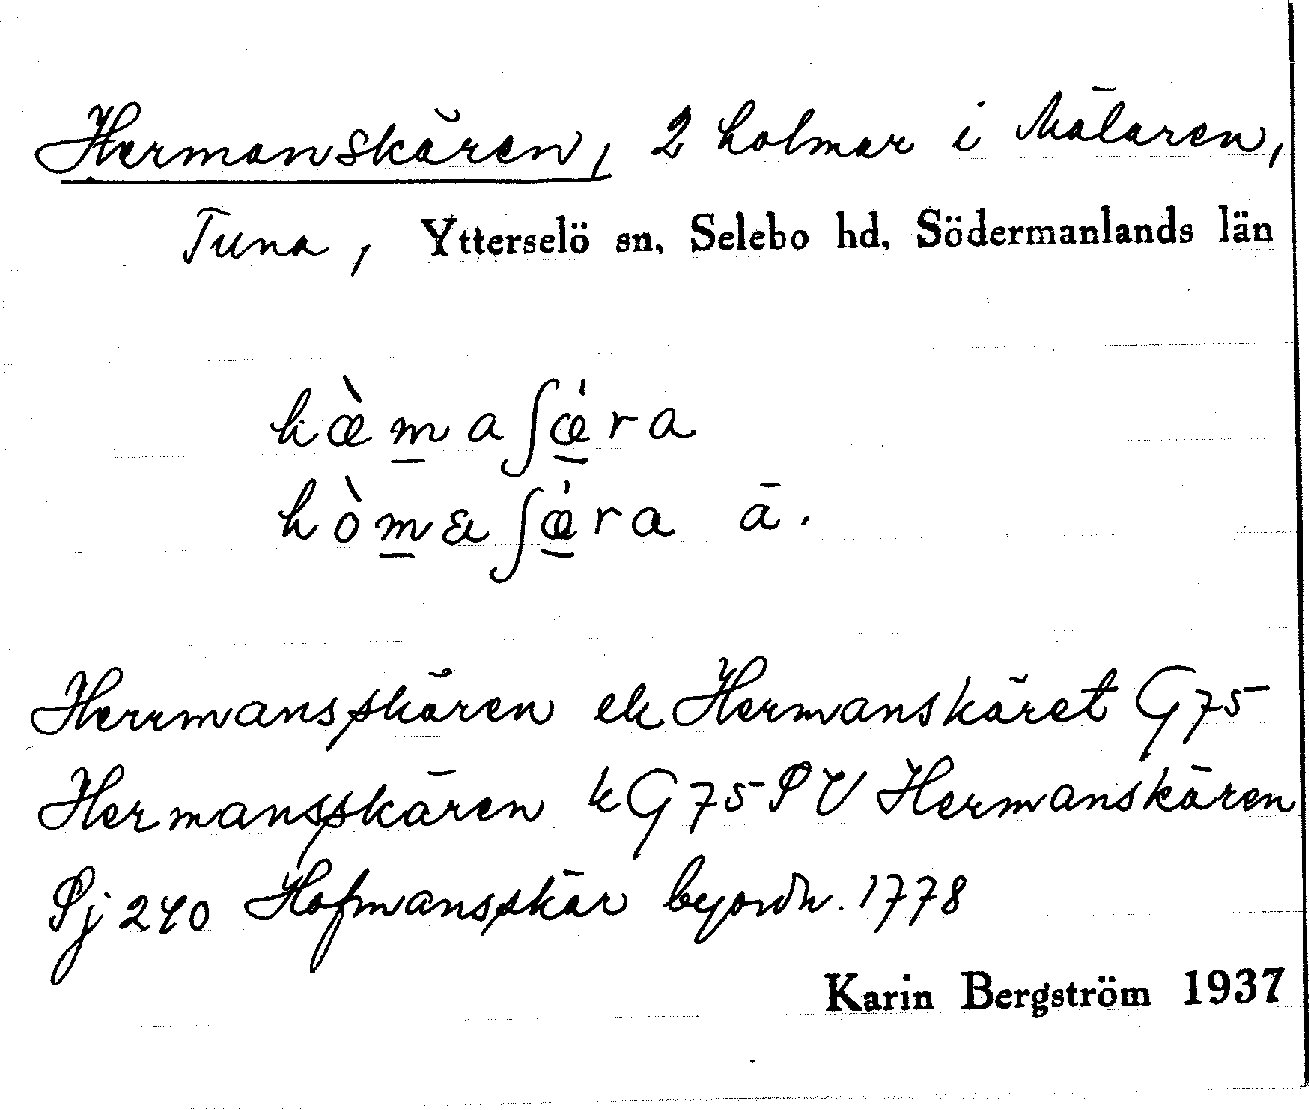 Hermanskären, 2 holmar i Mälaren,
Tuna, Ytterselö sn, Selebo hd, Södermanlands län
hæ̀m̲aʃœ̲́ra
hòm̲aʃœ̲́ra ä.
Herrmansskären ek Hermanskäret G 75
Hermansskären k G 75 P V Hermanskären
Sj 240 Hofmansskär byordn. 1778
Karin Bergström 1937